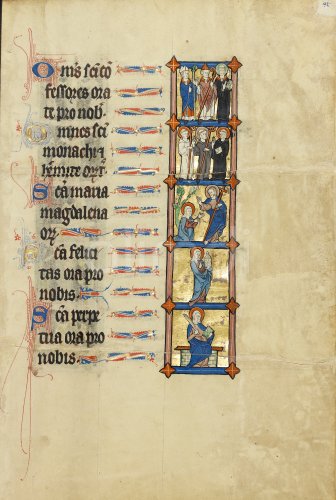 Om̄s sc̄i cō
fessores ora
te pro nob̄.
Omnes sc̄i
monachi ⁊
heremite or̄.
Sc̄a maria
magdalena
or̄.
Sc̄a felici
tas ora pro
nobis.
Sc̄a perpe
tua ora pro
nobis.